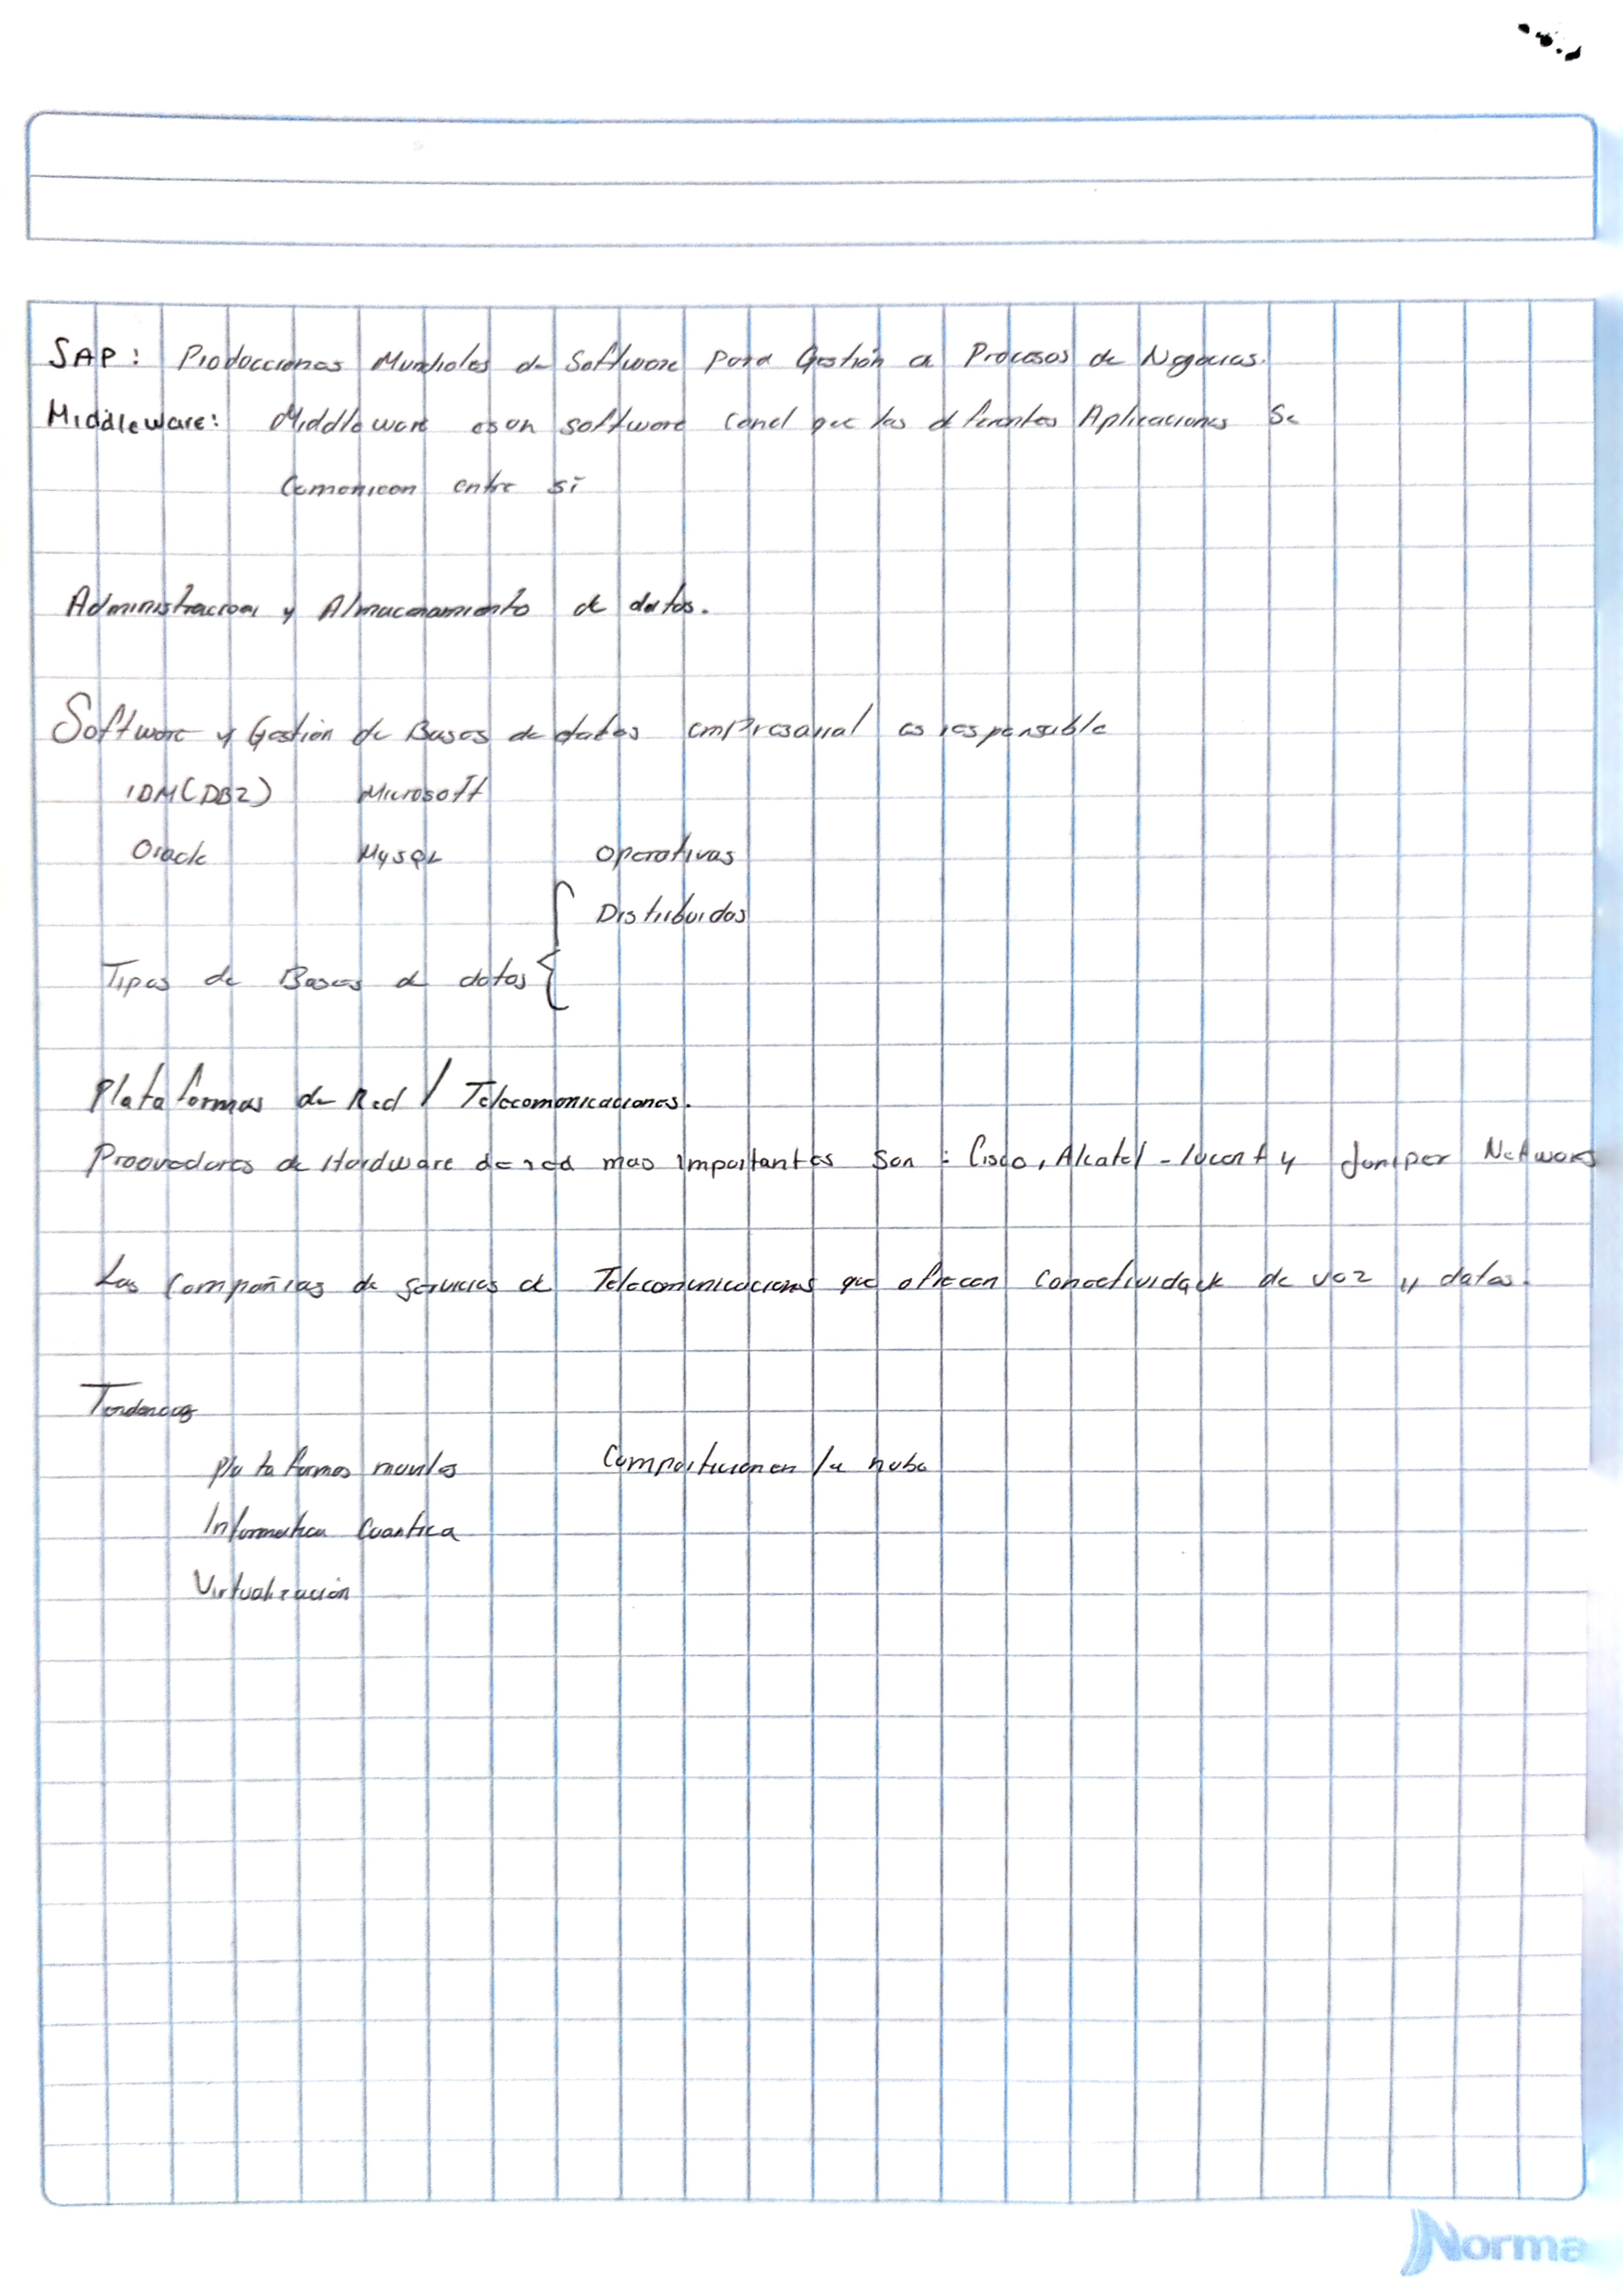 SAP: Producciones Mundiales de Software para Gestión de Procesos de Negocios.
Middleware: Middleware es un software con el que las diferentes Aplicaciones se
Comonican entre sí
Administracion y Almacenamiento de datos.
Software y Gestión de Bases de datos empresarial es responsable
IDM(DB2) Microsoft
Oracle Mysql Operativas
Distribuidas
Tipos de Bases de datos
Plataformas de Red / Telecomonicaciones.
Proovedores de Hardware de red mas importantes son: Cisco, Alcatel-lucent y Juniper Networs
Las Compañias de servicios de Telecomunicaciones que ofrecen conectividad de voz y datos.
Tendencias
plataformas moviles en la nube
Informatica Cuantica
Virtualización
Norma